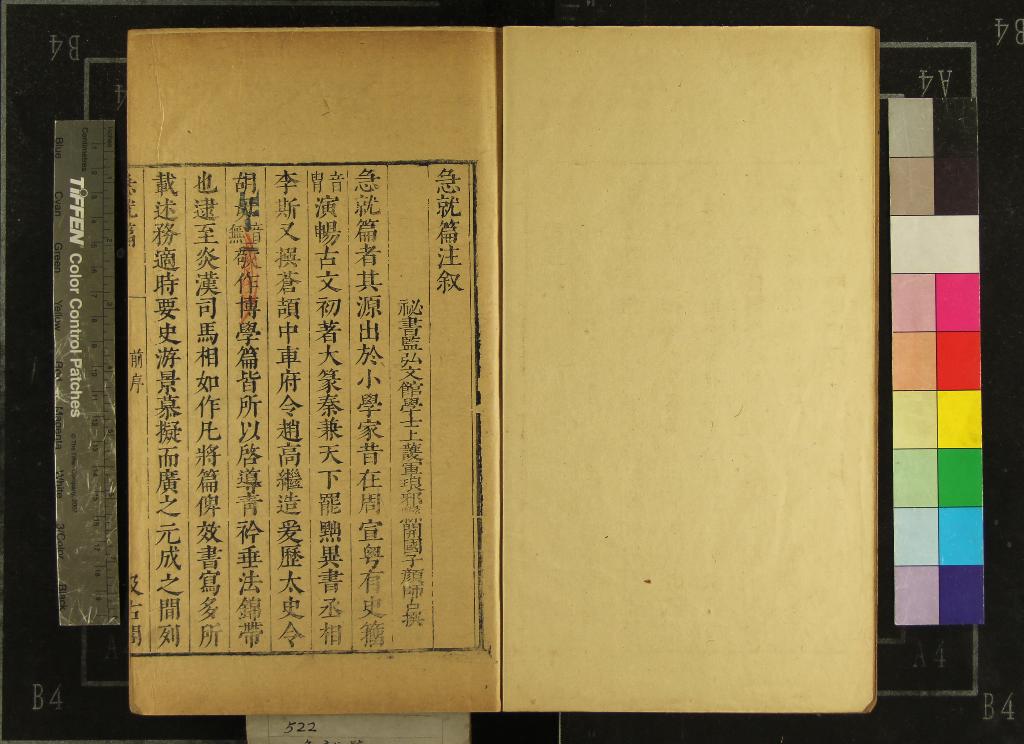 急就篇注叙
祕書監弘文館學士上護軍琅邪縣開國子顏師古撰
急就篇者其源出於小學家昔在周宣粤有史籀
音胄演暢古文初著大篆秦兼天下罷黜異書丞相
李斯又撰蒼頡中車府令趙高繼造爰歷太史令
胡母音無敬作博學篇皆所以啓導青衿垂法錦帶
也逮至炎漢司馬相如作凡將篇俾效書寫多所
載述務適時要史游景慕擬而廣之元成之間列
急就篇
前序
汲古閣
TIFFEN Color Control Patches
Centimetres
Blue
Cyan
Green
Yellow
Red
Magenta
White
3/Color
Black
B4
A4
B4
A4
B4
A4
B4
522